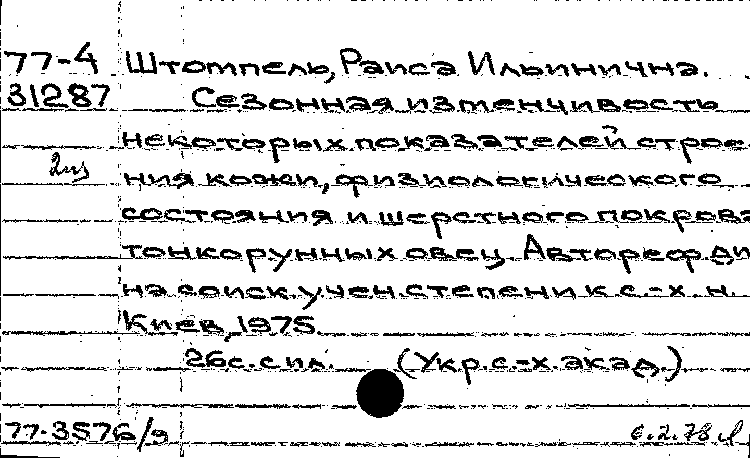 77-4 Штомпель, Раиса Ильинична.
31287 Сезонная изменчивость
некоторых показателей строе-
ния кожи, физиологического
состояния и шерстного покрова
тонкорунных овец. Автореф ди
на соиск. учен. степени к. с.-х. н.
Киев, 1975.
26 с. с ил. (Укр. с.-х. акад.)
77-3576/э